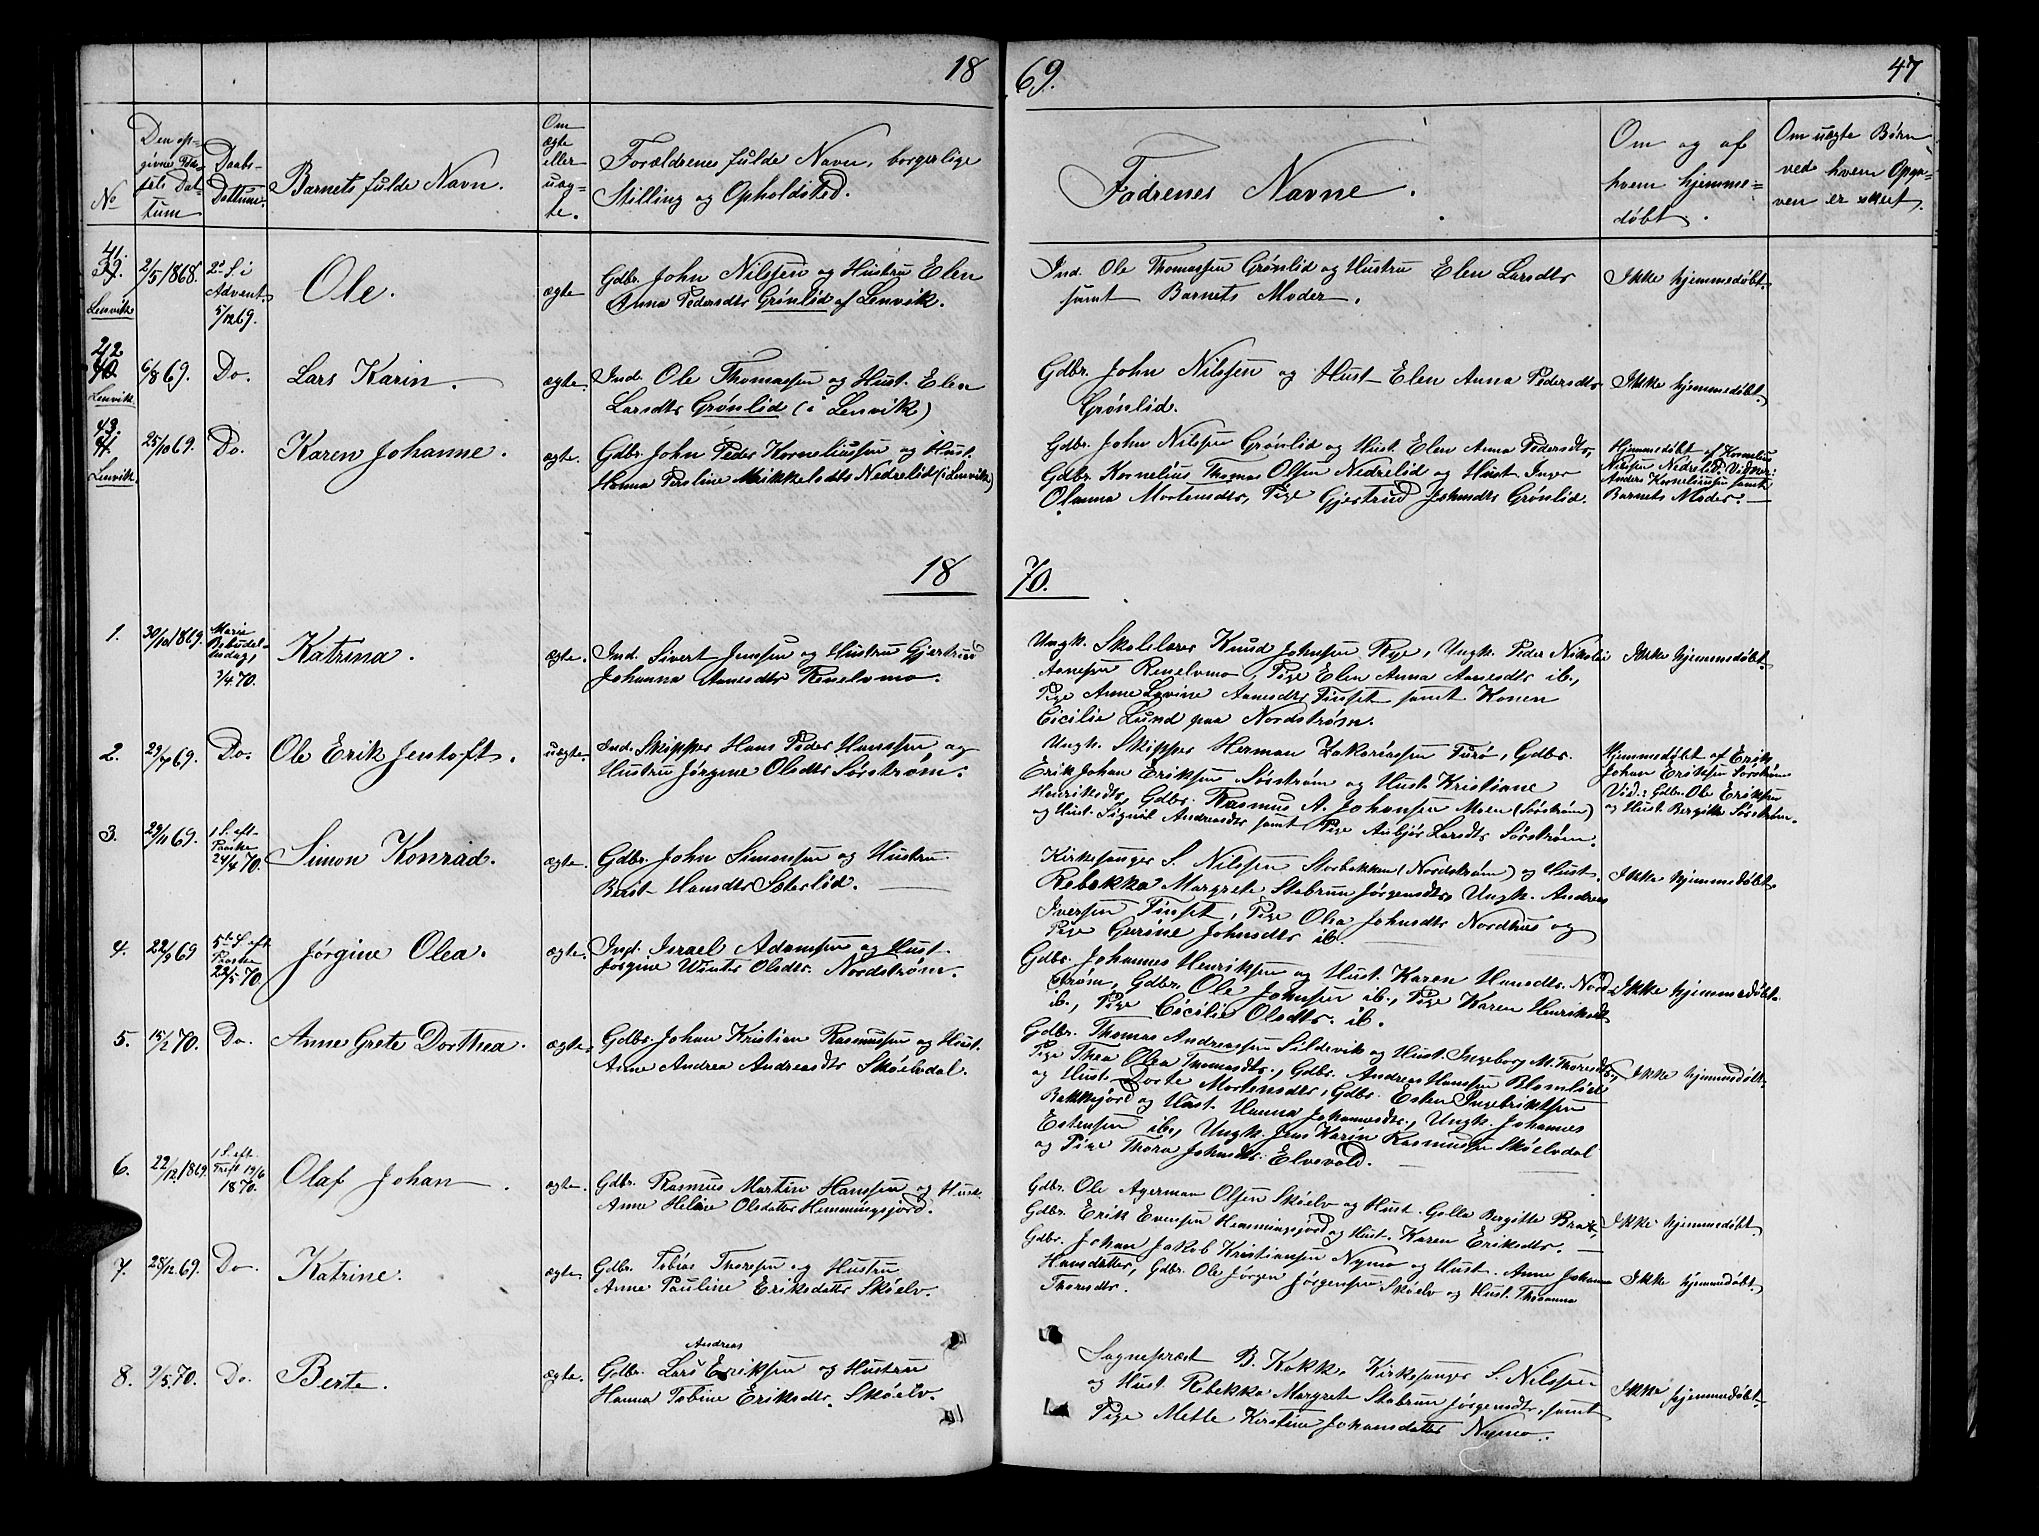 18 69. 47
No
Den opgivne Fødsels Dattum
Daabs-Dattum.
Barnets fulde Navn.
Om ægte eller uægte.
Forældrenes fulde Navn, borgerlige Stilling og Opholdsted.
Fadrenes Navne.
Om og af hvem hjemmedøbt.
Om uægte Børn ved hvem Opgaven er skeet.
41.
39.
Lenvik
2/5 1868.
2d S. i
Advent
5/12 69.
Ole.
ægte
Gdbr. John Nilssen og Hustru Elen
Anna Pedersdtr Grønlid af Lenvik.
Ind. Ole Thomassen Grønlid og Hustru Elen Larsdtr
samt Barnets Moder.
Ikke hjemmedøbt.
42
40.
Lenvik
6/8 69.
Do.
Lars Karin.
ægte.
Ind. Ole Thomassen og Hust. Elen
Larsdtr Grønlid (i Lenvik)
Gdbr. John Nilssen og Hust Elen Anna Pedersdtr
Grønlid.
Ikke hjemmedøbt.
43.
41.
Lenvik
25/10 69.
Do.
Karen Johanne.
ægte.
Gdbr. John Peder Korneliussen og Hust.
Hanna Peroline Mikkelsdtr Nedrelid (i Lenvik)
Gdbr. John Nilssen Grønlid og Hust. Elen Anna Pedersdtr,
Gdbr. Kornelius Thomas Olsen Nedrelid og Hust. Inger
Olanna Mortensdtr, Pige Gjertrud Johnsdtr Grønlid.
Hjemmedøbt af Kornelius
Nilsen Nedrelid. Vidner:
Anders Korneliussen samt
Barnets Moder.
18 70.
1.
30/10 1869.
Maria
Bebudel-
sesdag,
3/4 70.
Katrina.
ægte.
Ind. Sivert Jensen og Hustru Gjertrud
Johanna Arnesdtr Renelvmo.
Ungk. Skolelærer Knud Johnsen Rye, Ungk. Peder Nikolai
Arnesen Renelvmo, Pige Elen Anna Arnesdtr ib.,
Pige Anne Lovine Arnesdtr Finset samt Konen
Cicilie Lund paa Nordstrøm.
Ikke hjemmedøbt
2.
29/7 69.
Do.
Ole Erik Jentoft.
uægte.
Ind. Skipper Hans Peder Hanssen og
Hustru Jørgine Olsdtr Sørstrøm.
Ungk. Skipper Herman Zakariassen Furø, Gdbr.
Erik Johan Eriksen Sørstrøm og Hust. Kristiane
Henriksdtr, Gdbr. Rasmus A. Johansen Moen (Sørstrøm)
og Hust. Signil Andreasdtr samt Pige Anbjør Larsdtr Sørstrøm.
Hjemmedøbt af Erik
Johan Eriksen Sørstrøm
Vid.: Gdbr. Ole Eriksen
og Hust. Bergitte Sørstrøm.
3.
29/11 69.
1 S. eft.
Paaske
24/4 70.
Simon Konrad.
ægte.
Gdbr. John Simonsen og Hustru
Berit Hansdtr Sæterlid.
Kirkesanger S. Nilssen Storbakken (Nordstrøm) og Hust.
Rebekka Margrete Stabrun Jørgensdtr, Ungk. Andreas
Iversen Finset, Pige Olia Johnsdtr Nordhus og
Pige Gurine Johnsdtr ib.
Ikke hjemmedøbt.
4.
22/9 69
5te S. eft.
Paaske
22/5 70.
Jørgine Olea.
ægte.
Ind. Israel Adamsen og Hust.
Jørgine Winter Olsdtr. Nordstrøm.
Gdbr. Johannes Henriksen og Hust. Karen Hansdtr. Nord-
strøm, Gdbr. Ole Johnsen ib., Pige Karen Henriksdtr
ib., Pige Cicilie Olsdtr. ib.
Ikke hjemmedøbt.
5.
15/2 70.
Do.
Anne Grete Dorthea.
ægte.
Gdbr. Johan Kristian Rasmussen og Hust.
Anne Andrea Andreasdtr Skøelvdal.
Gdbr. Thomas Andreassen Sildevik og Hust. Ingeborg M. Thoresdtr,
Pige Thea Olea Thomasdtr., Gdbr. Andreas Hanssen Blomlid
og Hust. Dorte Mortensdtr, Gdbr. Esten Ingebriktsen
Bakkejord og Hust. Hanna Johannesdtr., Ungk. Johannes
Estensen ib., Ungk. Jens Karin Rasmussen Skøelvdal
og Pige Thora Johnsdtr. Elvevold.
Ikke hjemmedøbt.
6.
22/12 1869
1 S. eft.
Tref. 19/6
1870.
Olaf Johan
ægte.
Gdbr. Rasmus Martin Hanssen og Hust.
Anne Heline Olsdatter Hemmingsjord.
Gdbr. Ole Agerman Olsen Skøelv og Hust. Golla Bergitte Brate,
Gdbr. Erik Evensen Hemmingsjord og Hust. Karen Eriksdtr.
Ikke hjemmedøbt.
7.
28/12 69.
Do.
Katrine.
ægte.
Gdbr. Tobias Thoresen og Hustru
Anne Pauline Eriksdatter Skøelv.
Gdbr. Johan Jakob Kristiansen Nymo og Hust. Anne Johanna
Hansdatter, Gdbr. Ole Jørgen Jørgensen Skøelv og Hust. Thoranna
Thoresdtr.
Ikke hjemmedøbt.
8.
2/5 70.
Do.
Berte.
ægte.
Andreas
Gdbr. Lars Eriksen og Hustru
Hanna Tobine Eriksdtr. Skøelv.
Sognepræst B. Kokk, Kirkesanger S. Nilssen
og Hust. Rebekka Margrete Stabrun Jørgensdtr, samt
Pige Mette Kirstine Johansdatter Nymo.
Ikke hjemmedøbt.